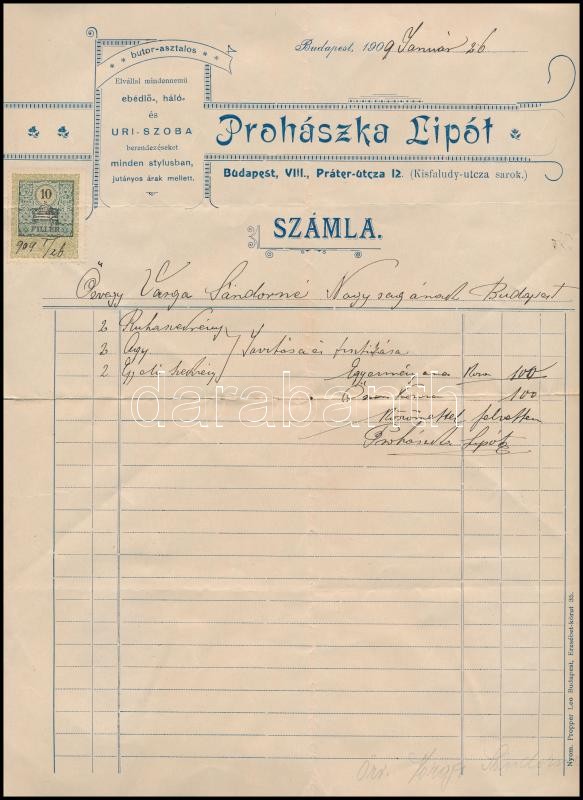 bútor-asztalos
Elvállal mindennemű
ebédlő-, háló-
és
URI-SZOBA
berendezéseket
minden stylusban,
jutányos árak mellett.
Budapest, 1909 Január 26
Prohászka Lipót
Budapest, VIII., Práter-utcza 12. (Kisfaludy-utcza sarok.)
10
FILLÉR
909 I/26
SZÁMLA.
Özvegy Varga Sándorné Nagyságának Budapest
2 Ruhaszekrény
2 Ágy
Javítása és
2 Éjjeli szekrény
Kor 100
100
Köszönettel felvettem
Prohászka Lipót
darabanth
Özv. Varga Sándorné
Nyom. Propper Leo Budapest, Erzsébet-körut 35.